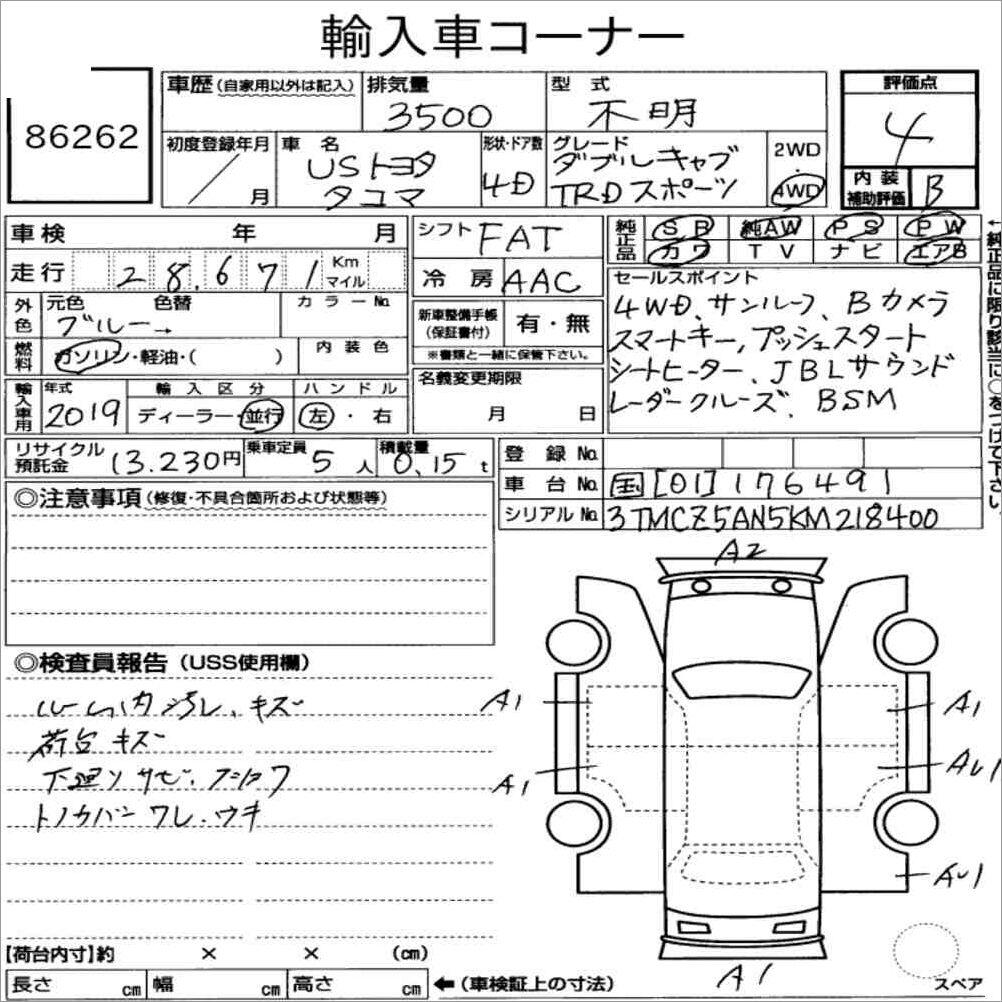 輸入車コーナー
86262
車歴(自家用以外は記入) 排気量 3500 型式 不明 評価点 4
初度登録年月 / 月 車名 USトヨタ タコマ 形状・ドア数 4D グレード ダブルキャブ TRDスポーツ 2WD 4WD 内装補助評価 B
車検 年 月 シフト FAT 純正品 SR 純AW PS PW
カワ TV ナビ エアB
走行 28,671 Km マイル 冷房 AAC
←純正品に限り該当に○をつけて下さい。
外色 元色 色替 カラーNo.
ブルー→
新車整備手帳(保証書付) 有・無
※書類と一緒に保管下さい。
セールスポイント
4WD、サンルーフ、Bカメラ
スマートキー,プッシュスタート
シートヒーター、JBLサウンド
レーダークルーズ、BSM
燃料 ガソリン・軽油・( ) 内装色
名義変更期限 月 日
輸入車用 年式 2019 輸入区分 ディーラー・並行 ハンドル 左・右
リサイクル預託金 13.230円 乗車定員 5人 積載量 0.15t
登録No.
車台No. 国[01]176491
シリアルNo. 3TMCZ5AN5KM218400
◎注意事項(修復・不具合箇所および状態等)
◎検査員報告(USS使用欄)
ルーム内汚レ、キズ
荷台キズ
下廻リサビ、フショク
トノカバーワレ・ウキ
A2
A1
A1
A1
AU1
AU1
A1
スペア
【荷台内寸】約 × × (cm)
長さ cm 幅 cm 高さ cm ←(車検証上の寸法)